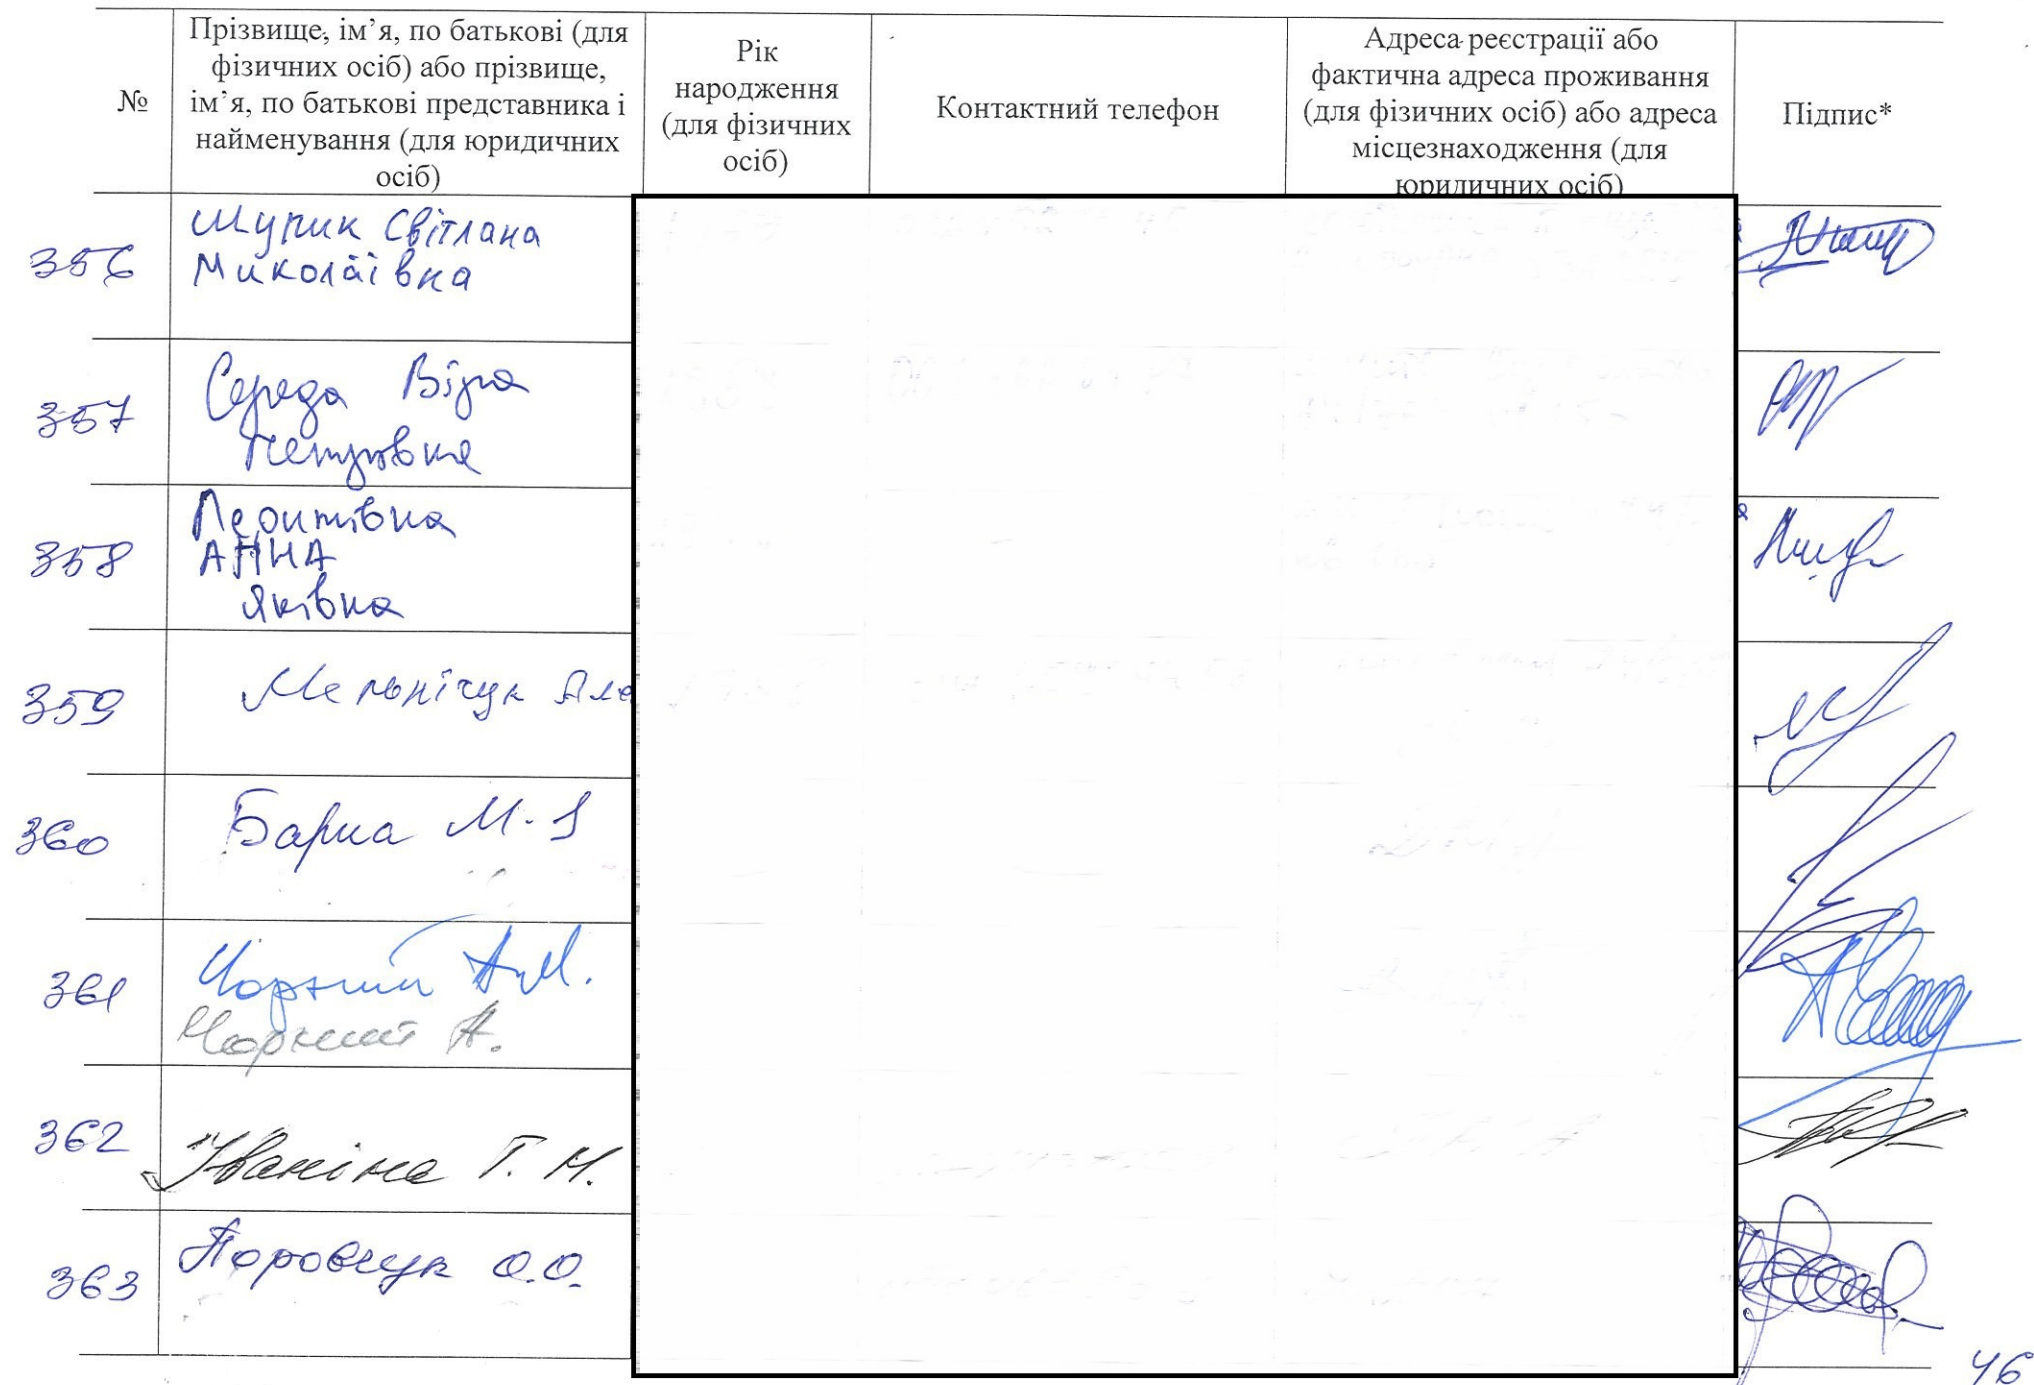 №
Прізвище, ім’я, по батькові (для
фізичних осіб) або прізвище,
ім’я, по батькові представника і
найменування (для юридичних
осіб)
Рік
народження
(для фізичних
осіб)
Контактний телефон
Адреса реєстрації або
фактична адреса проживання
(для фізичних осіб) або адреса
місцезнаходження (для
юридичних осіб)
Підпис*
356
Світлана
Миколаївна
357
Середа Віра
Петрівна
358
Анна
Яківна
359
Мельнічук
360
Барна М.
361
Чорний А.М.
Чорний А.
362
Іваніна Т. М.
363
О.О.
46